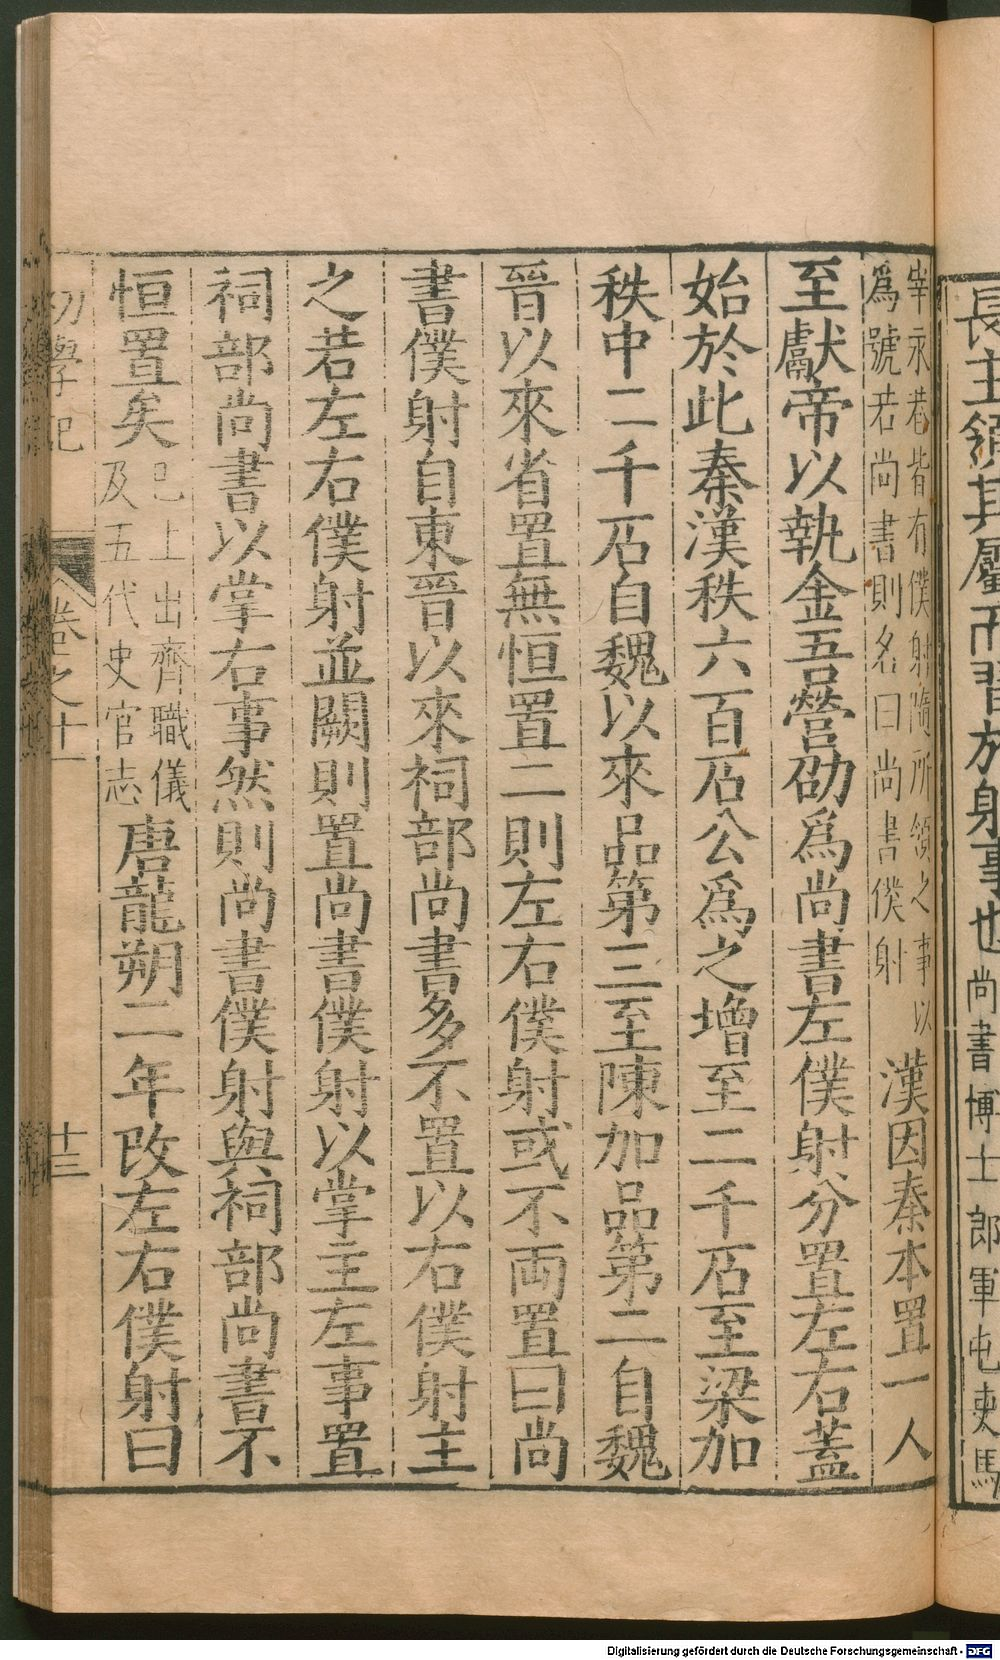 長主領其屬而習於射事也尚書博士郎軍屯吏馬
宰永巷皆有僕射隨所領之事以
爲號若尚書則名曰尚書僕射
漢因秦本置一人
至獻帝以執金吾營劭爲尚書左僕射分置左右蓋
始於此秦漢秩六百石公爲之增至二千石至梁加
秩中二千石自魏以來品第三至陳加品第二自魏
晉以來省置無恒置二則左右僕射或不兩置曰尚
書僕射自東晉以來祠部尚書多不置以右僕射主
之若左右僕射並闕則置尚書僕射以掌主左事置
祠部尚書以掌右事然則尚書僕射與祠部尚書不
恒置矣
已上出齊職儀
及五代史官志
唐龍朔二年改左右僕射曰
初學記
卷之十一
十三
Digitalisierung gefördert durch die Deutsche Forschungsgemeinschaft - DFG